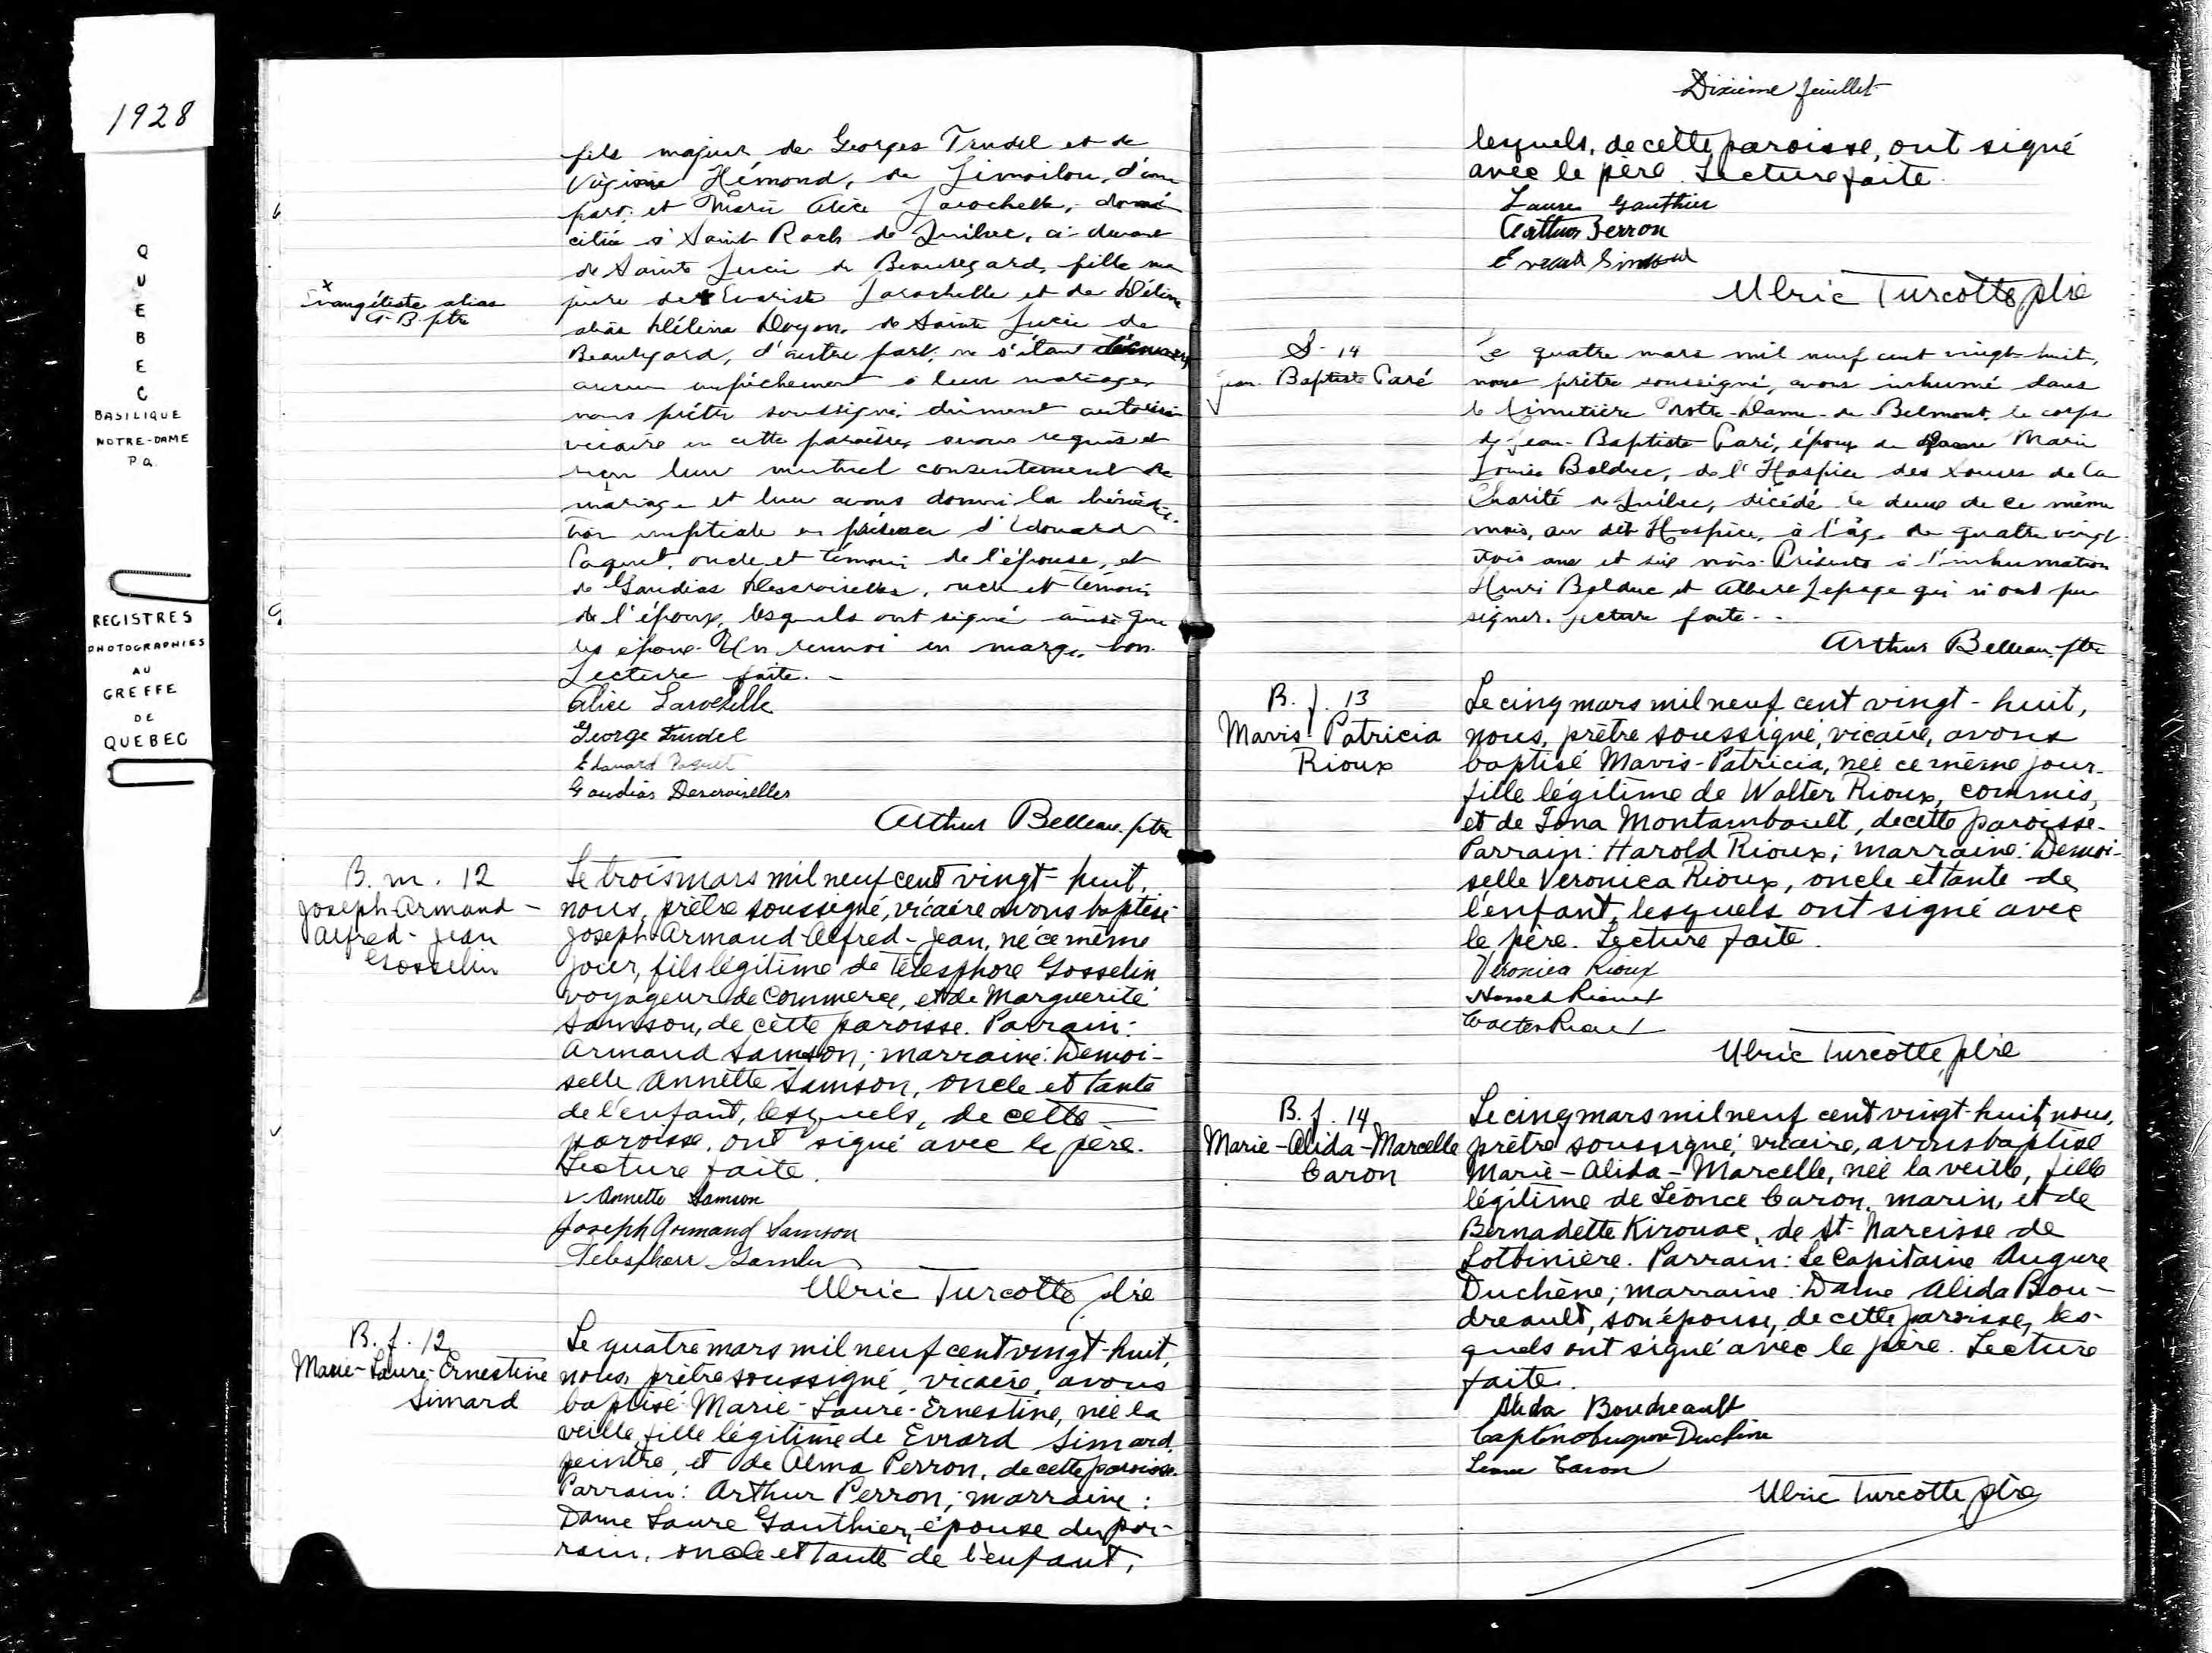 1928
QUEBEC
BASILIQUE
NOTRE-DAME
P.Q.
REGISTRES
PHOTOGRAPHIES
AU
GREFFE
DE
QUEBEC
fils majeur de Georges Trudel et de
Virginie Hémond, de Limoilou, d'une
part; et Marie Alice Larochelle, domi
ciliée à Saint Roch de Québec, ci-devant
de Sainte Lucie de Beauregard, fille ma
x
Evangéliste alias
A. B. ptre
jeure de x Evariste Larochelle et de Délina
alias Hélèna Doyon, de Sainte Lucie de
Beauregard, d'autre part; ne s'étant découvert
aucun empêchement à leur mariage,
nous prêtre soussigné, dûment autorisé
vicaire en cette paroisse, avons requis et
reçu leur mutuel consentement de
mariage et leur avons donné la bénédic-
tion nuptiale en présence d'Edouard
Paquet, oncle et témoin de l'épouse, et
de Gaudias Descroiselles, oncle et témoin
de l'époux, lesquels ont signé ainsi que
les époux. Un renvoi en marge, bon.
Lecture faite. -
Alice Larochelle
George Trudel
Edouard Paquet
Gaudias Descroiselles
Arthur Belleau, ptre
B. m. 12
Joseph-Armand-
Alfred-Jean
Gosselin
Le trois mars mil neuf cent vingt-huit,
nous, prêtre soussigné, vicaire avons baptisé
Joseph-Armand-Alfred-Jean, né ce même
jour, fils légitime de Télesphore Gosselin
voyageur de commerce, et de Marguerite
Samson, de cette paroisse. Parrain:
Armand Samson; marraine: Demoi-
selle Annette Samson, oncle et tante
de l'enfant, lesquels, de cette
paroisse, ont signé avec le père.
Lecture faite.
Annette Samson
Joseph Armand Samson
Telesphore
Ulric Turcotte, ptre
B. f. 12
Marie-Laure-Ernestine
Simard
Le quatre mars mil neuf cent vingt-huit,
nous, prêtre soussigné, vicaire, avons
baptisé Marie-Laure-Ernestine, née la
veille, fille légitime de Evrard Simard,
peintre, et de Alma Perron, de cette paroisse.
Parrain: Arthur Perron; marraine:
Dame Laure Gauthier, épouse du par-
rain, oncle et tante de l'enfant,
Dixième feuillet
lesquels, de cette paroisse, ont signé
avec le père. Lecture faite.
Laure Gauthier
Arthur Perron
Evrard Simard
Ulric Turcotte, ptre
S - 14
Jean-Baptiste Paré
Le quatre mars mil neuf cent vingt-huit,
nous prêtre soussigné, avons inhumé dans
le cimetière Notre-Dame-de-Belmont, le corps
de Jean-Baptiste Paré, époux de Dame Marie
Louise Bolduc, de l'Hospice des Soeurs de la
Charité de Québec, décédé le deux de ce même
mois, au dit Hospice, à l'âge de quatre vingt
trois ans et six mois. Présents à l'inhumation
Henri Bolduc et Albert Lepage qui n'ont pu
signer. Lecture faite. -
Arthur Belleau, ptre
B. f. 13
Mavis Patricia
Rioux
Le cinq mars mil neuf cent vingt-huit,
nous, prêtre soussigné, vicaire, avons
baptisé Mavis-Patricia, née ce même jour,
fille légitime de Walter Rioux, commis,
et de Iona Montambault, de cette paroisse.
Parrain: Harold Rioux; marraine: Demoi-
selle Veronica Rioux, oncle et tante de
l'enfant, lesquels ont signé avec
le père. Lecture faite.
Veronica Rioux
Harold Rioux
Walter Rioux
Ulric Turcotte, ptre
B. f. 14
Marie-Alida-Marcelle
Caron
Le cinq mars mil neuf cent vingt-huit, nous,
prêtre soussigné, vicaire, avons baptisé
Marie-Alida-Marcelle, née la veille, fille
légitime de Léonce Caron, marin, et de
Bernadette Kirouac, de St-Narcisse de
Lotbinière. Parrain: Le Capitaine Augure
Duchène; marraine: Dame Alida Bou-
dreault, son épouse, de cette paroisse, les-
quels ont signé avec le père. Lecture
faite.
Alida Boudreault
Duchène
Léonce Caron
Ulric Turcotte, ptre